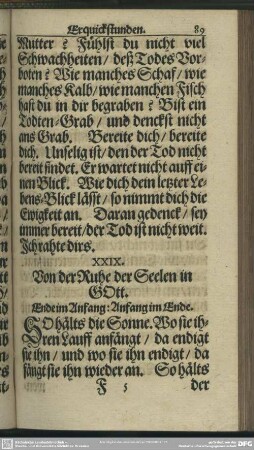 Erquickstunden. 89
Mutter? Fühlst du nicht viel
Schwachheiten / deß Todes Vor-
boten? Wie manches Schaf / wie
manches Kalb / wie manchen Fisch
hast du in dir begraben? Bist ein
Todten-Grab / und denckst nicht
ans Grab. Bereite dich / bereite
dich. Unselig ist / den der Tod nicht
bereit findet. Er wartet nicht auff ei-
nen Blick. Wie dich dein letzter Le-
bens-Blick läßt / so nimmt dich die
Ewigkeit an. Daran gedenck / sey
immer bereit / der Tod ist nicht weit.
Ich rahte dirs.
XXIX.
Von der Ruhe der Seelen in
GOtt.
Ende im Anfang: Anfang im Ende.
SO hälts die Sonne. Wo sie ih-
ren Lauff anfängt / da endigt
sie ihn / und wo sie ihn endigt / da
fängt sie ihn wieder an. So hälts
F 5 der